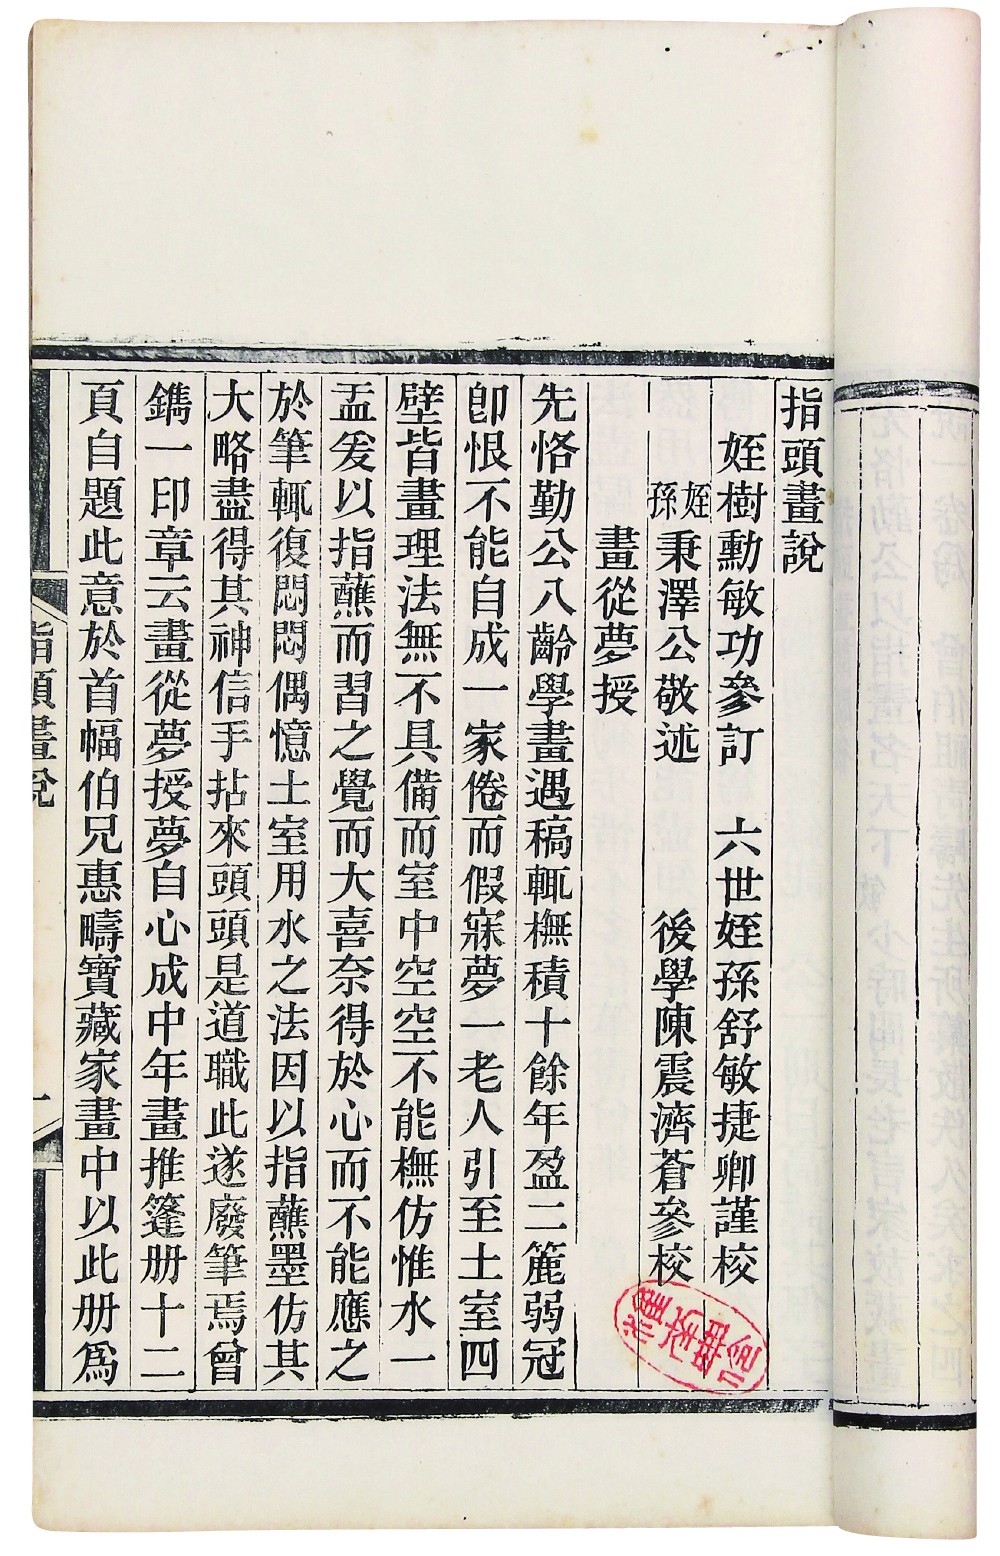 指頭畫說
姪樹勳敏功參訂　六世姪孫舒敏捷卿謹校
姪孫秉澤公敬述　後學陳震濟蒼參校
畫從夢授
先恪勤公八齡學畫遇稿輒橅積十餘年盈二簏弱冠
卽恨不能自成一家倦而假寐夢一老人引至土室四
壁皆畫理法無不具備而室中空空不能橅仿惟水一
盂爰以指蘸而習之覺而大喜奈得於心而不能應之
於筆輒復悶悶偶憶土室用水之法因以指蘸墨仿其
大略盡得其神信手拈來頭頭是道職此遂廢筆焉曾
鐫一印章云畫從夢授夢自心成中年畫推篷册十二
頁自題此意於首幅伯兄惠疇寶藏家畫中以此册爲
指頭畫說
一